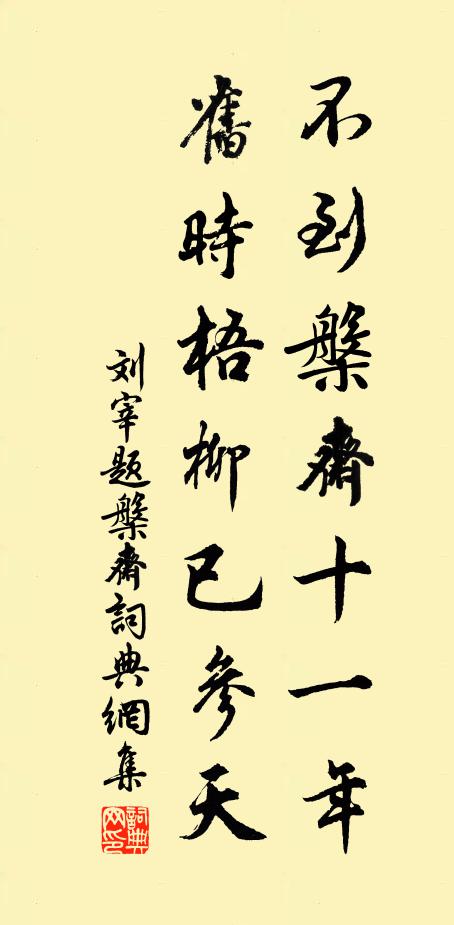 不到槃齋十一年
舊時梧柳已參天
刘宰題槃齋詞典網集
詞典网印